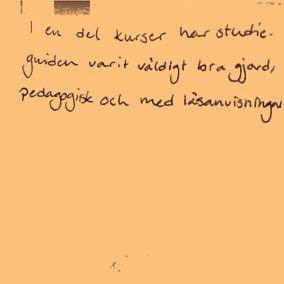 I en del kurser har studie-
guiden varit väldigt bra gjord,
pedagogisk och med läsanvisningar